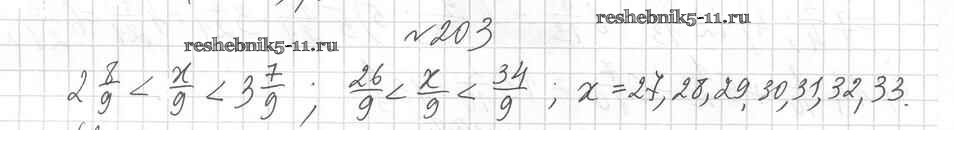 reshebnik5-11.ru
№203
reshebnik5-11.ru
2 8/9 < x/9 < 3 7/9 ; 26/9 < x/9 < 34/9 ; x = 27, 28, 29, 30, 31, 32, 33.